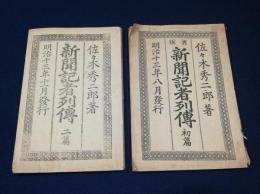 佐々木秀二郎著
新聞記者列傳
初篇
明治十三年八月發行
佐々木秀二郎著
新聞記者列傳
二篇
明治十三年十一月發行